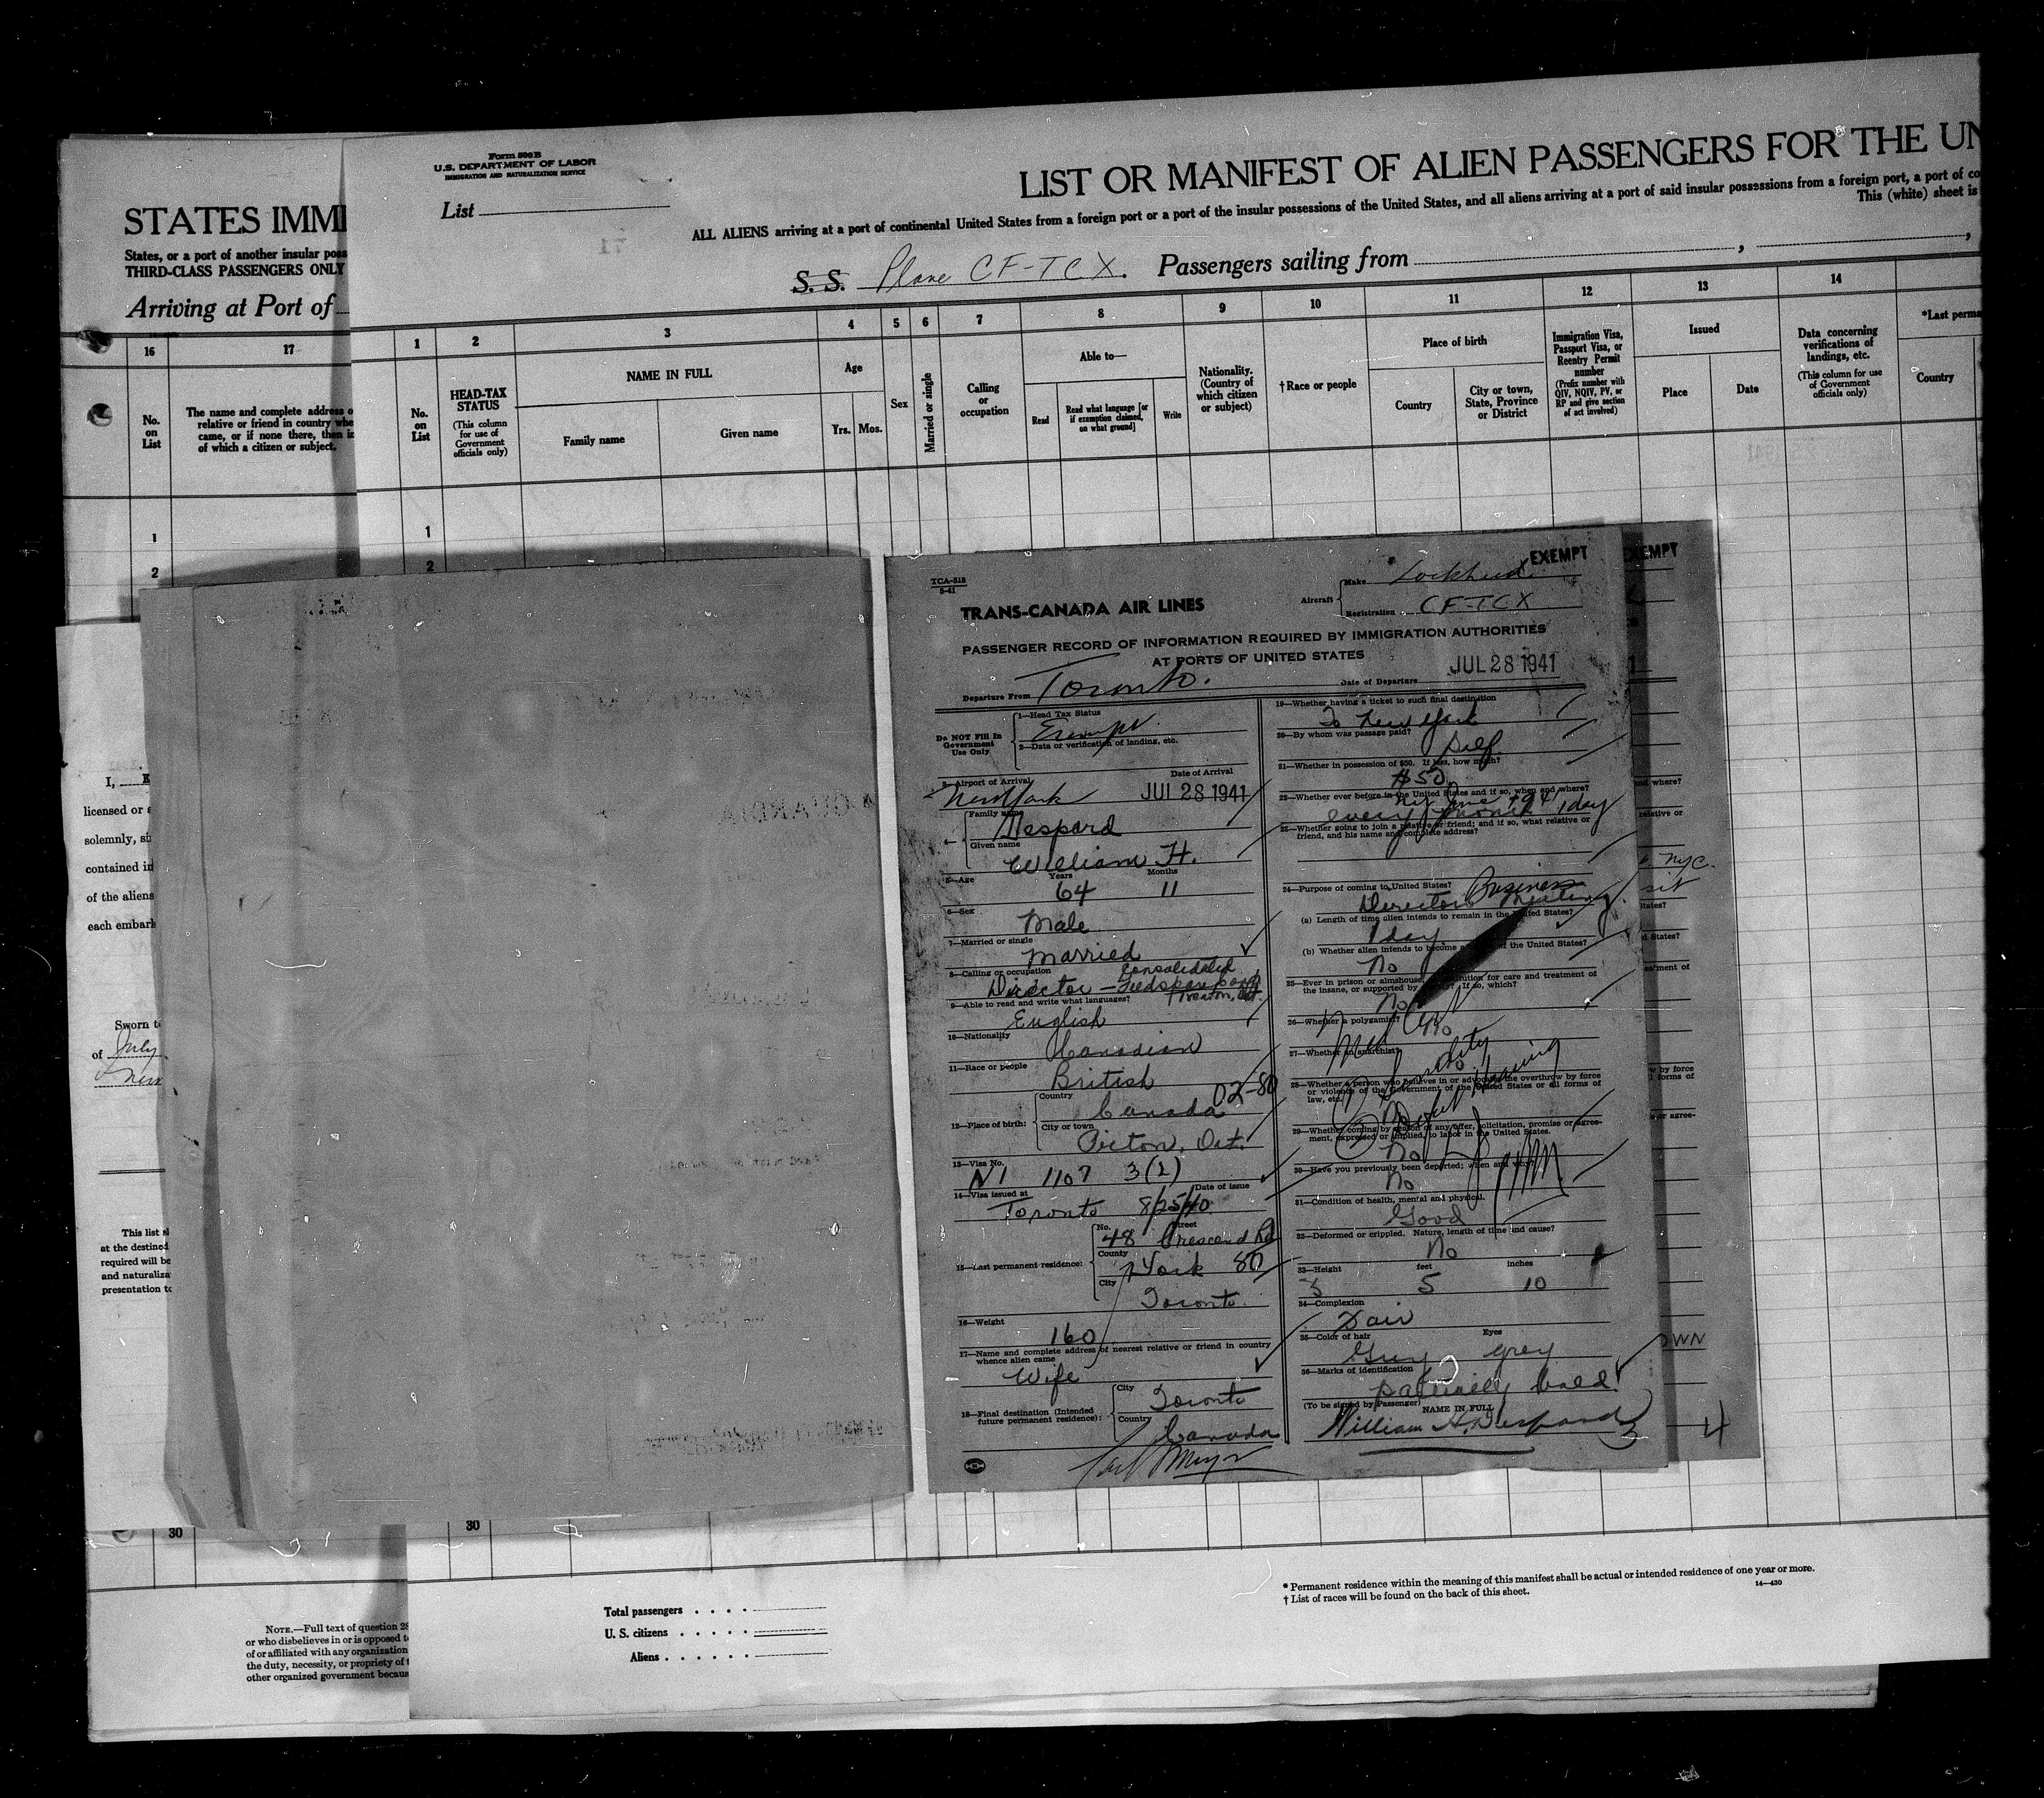 Form 500 B
U.S. DEPARTMENT OF LABOR
IMMIGRATION AND NATURALIZATION SERVICE
List
LIST OR MANIFEST OF ALIEN PASSENGERS FOR THE UN
ALL ALIENS arriving at a port of continental United States from a foreign port or a port of the insular possessions of the United States, and all aliens arriving at a port of said insular possessions from a foreign port, a port of co
This (white) sheet is
S. S. Plane CF-TCX. Passengers sailing from
STATES IMMI
States, or a port of another insular poss
THIRD-CLASS PASSENGERS ONLY
Arriving at Port of
16 17
No. on List
The name and complete address o
relative or friend in country whe
came, or if none there, then i
of which a citizen or subject.
1 2 3 4 5 6 7 8 9 10 11 12 13 14
No. on List
HEAD-TAX STATUS
(This column for use of Government officials only)
NAME IN FULL
Family name Given name
Age
Yrs. Mos.
Sex
Married or single
Calling or occupation
Able to—
Read
Read what language [or if exemption claimed, on what ground]
Write
Nationality. (Country of which citizen or subject)
†Race or people
Place of birth
Country
City or town, State, Province or District
Immigration Visa, Passport Visa, or Reentry Permit number
(Prefix number with QIV, NQIV, PV, or RP and give section of act involved)
Issued
Place Date
Data concerning verifications of landings, etc.
(This column for use of Government officials only)
*Last perma
Country
1 1
2 2
TCA-518
5-41
TRANS-CANADA AIR LINES
Aircraft
Make Lockheed
EXEMPT
EXEMPT
Registration CF-TCX
PASSENGER RECORD OF INFORMATION REQUIRED BY IMMIGRATION AUTHORITIES
AT PORTS OF UNITED STATES
Departure From Toronto.
Date of Departure JUL 28 1941
Do NOT Fill In
Government
Use Only
1—Head Tax Status
Exempt
2—Data or verification of landing, etc.
3—Airport of Arrival Date of Arrival
New York JUL 28 1941
4— Family name
Despard
Given name
William H.
5—Age Years Months
64 11
6—Sex
Male
7—Married or single
Married
8—Calling or occupation
Director — Consolidated
9—Able to read and write what languages?
English
10—Nationality
Canadian
11—Race or people
British
12—Place of birth:
Country
Canada 02-80
City or town
Picton, Ont.
13—Visa No.
1107 3(2)
14—Visa issued at Date of issue
Toronto 8/25/40
15—Last permanent residence:
No. Street
48 Crescent Rd
County
York 80
City
Toronto.
16—Weight
160
17—Name and complete address of nearest relative or friend in country
whence alien came
Wife
18—Final destination (Intended
future permanent residence):
City
Toronto
Country
Canada
19—Whether having a ticket to such final destination
To New York
20—By whom was passage paid?
Self
21—Whether in possession of $50. If less, how much?
$50
22—Whether ever before in the United States and if so, when and where?
every month 1 day
23—Whether going to join a relative or friend; and if so, what relative or
friend, and his name and complete address?
24—Purpose of coming to United States? Business
Director Meeting.
(a) Length of time alien intends to remain in the United States?
1 day
(b) Whether alien intends to become a of the United States?
No
25—Ever in prison or almshouse, institution for care and treatment of
the insane, or supported by If so, which?
No
26—Whether a polygamist?
No
27—Whether an anarchist?
No
28—Whether a person who believes in or advocates the overthrow by force
or violence of the Government of the United States or all forms of
law, etc.
No
Med Cert
Senility
Defect Hearing
29—Whether coming by reason of any offer, solicitation, promise or agree-
ment, expressed or implied, to labor in the United States.
No
30—Have you previously been deported; when and why?
No
31—Condition of health, mental and physical.
Good
32—Deformed or crippled. Nature, length of time and cause?
No
33—Height feet inches
5 10
34—Complexion
Fair
35—Color of hair Eyes
Grey grey
36—Marks of identification
partially bald.
(To be signed by Passenger) NAME IN FULL
William H. Despard
3
4
relative or
NYC.
OWN
I,
licensed or a
solemnly, si
contained in
of the aliens
each embark
Sworn t
of July
This list s
at the destined
required will be
and naturaliza
presentation to
30 30
Total passengers . . . .
U. S. citizens . . . . .
Aliens . . . . . .
* Permanent residence within the meaning of this manifest shall be actual or intended residence of one year or more.
† List of races will be found on the back of this sheet.
14—430
NOTE.—Full text of question 28
or who disbelieves in or is opposed t
of or affiliated with any organization
the duty, necessity, or propriety of t
other organized government becau